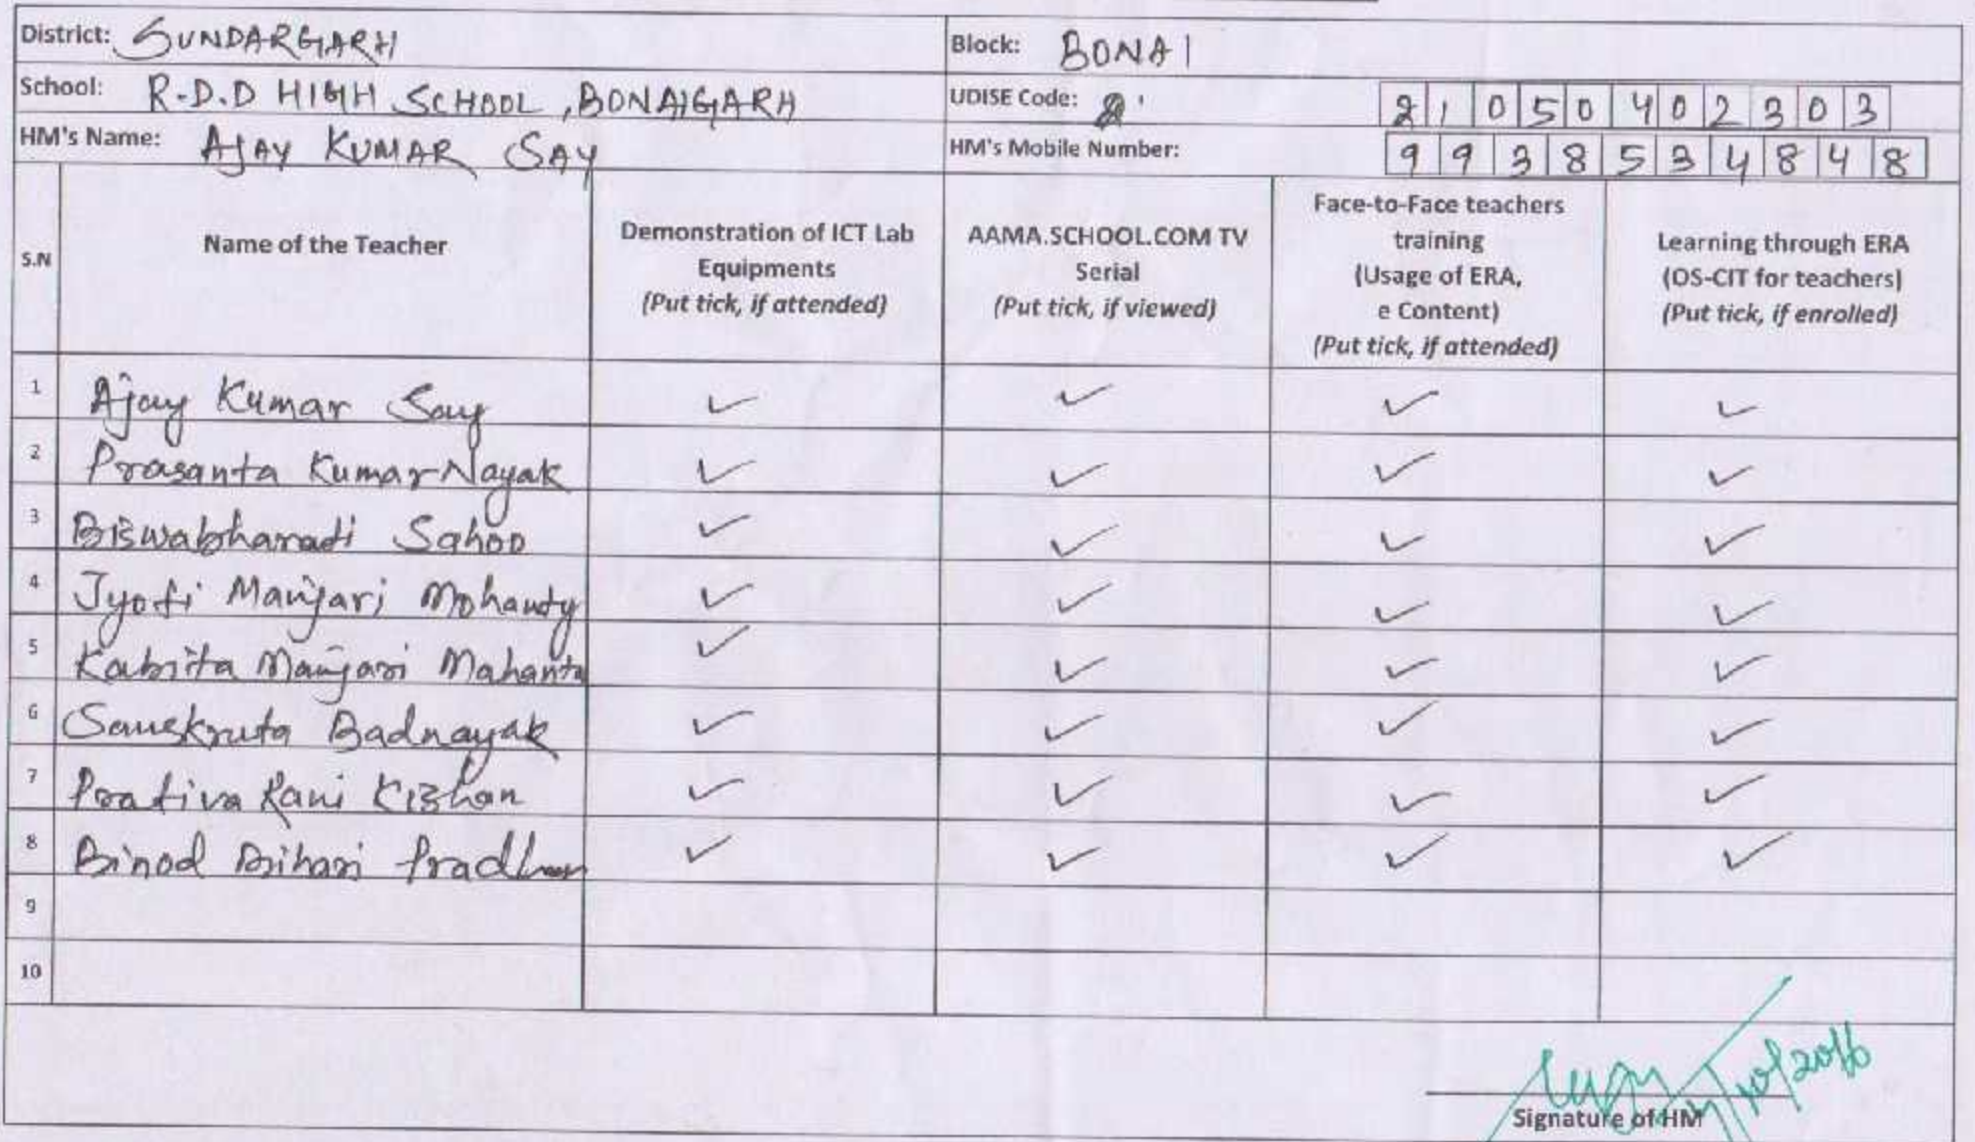 District: SUNDARGARH Block: BONAI
School: R.D.D HIGH SCHOOL, BONAIGARH UDISE Code: 21050402303
HM's Name: AJAY KUMAR SAY HM's Mobile Number: 9938534848
S.N Name of the Teacher Demonstration of ICT Lab Equipments (Put tick, if attended) AAMA.SCHOOL.COM TV Serial (Put tick, if viewed) Face-to-Face teachers training (Usage of ERA, e Content) (Put tick, if attended) Learning through ERA (OS-CIT for teachers) (Put tick, if enrolled)
1 Ajay Kumar Say ✓ ✓ ✓ ✓
2 Prasanta Kumar Nayak ✓ ✓ ✓ ✓
3 Biswabharati Sahoo ✓ ✓ ✓ ✓
4 Jyoti Manjari Mohanty ✓ ✓ ✓ ✓
5 Kabita Manjari Mahanta ✓ ✓ ✓ ✓
6 Sanskruta Badnayak ✓ ✓ ✓ ✓
7 Prativa Rani Kishan ✓ ✓ ✓ ✓
8 Binod Bihari Pradhan ✓ ✓ ✓ ✓
9
10
Signature of HM